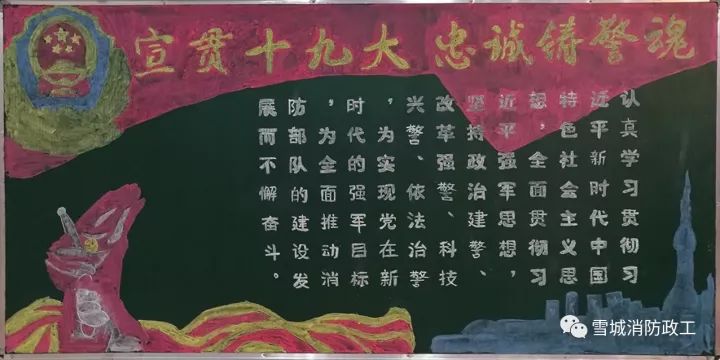 宣贯十九大 忠诚铸警魂
认真学习贯彻习
近平新时代中国
特色社会主义思
想,全面贯彻习
近平强军思想,
坚持政治建警、
改革强警、科技
兴警、依法治警
,为实现党在新
时代的强军目标
,为全面推动消
防部队的建设发
展而不懈奋斗。
雪城消防政工